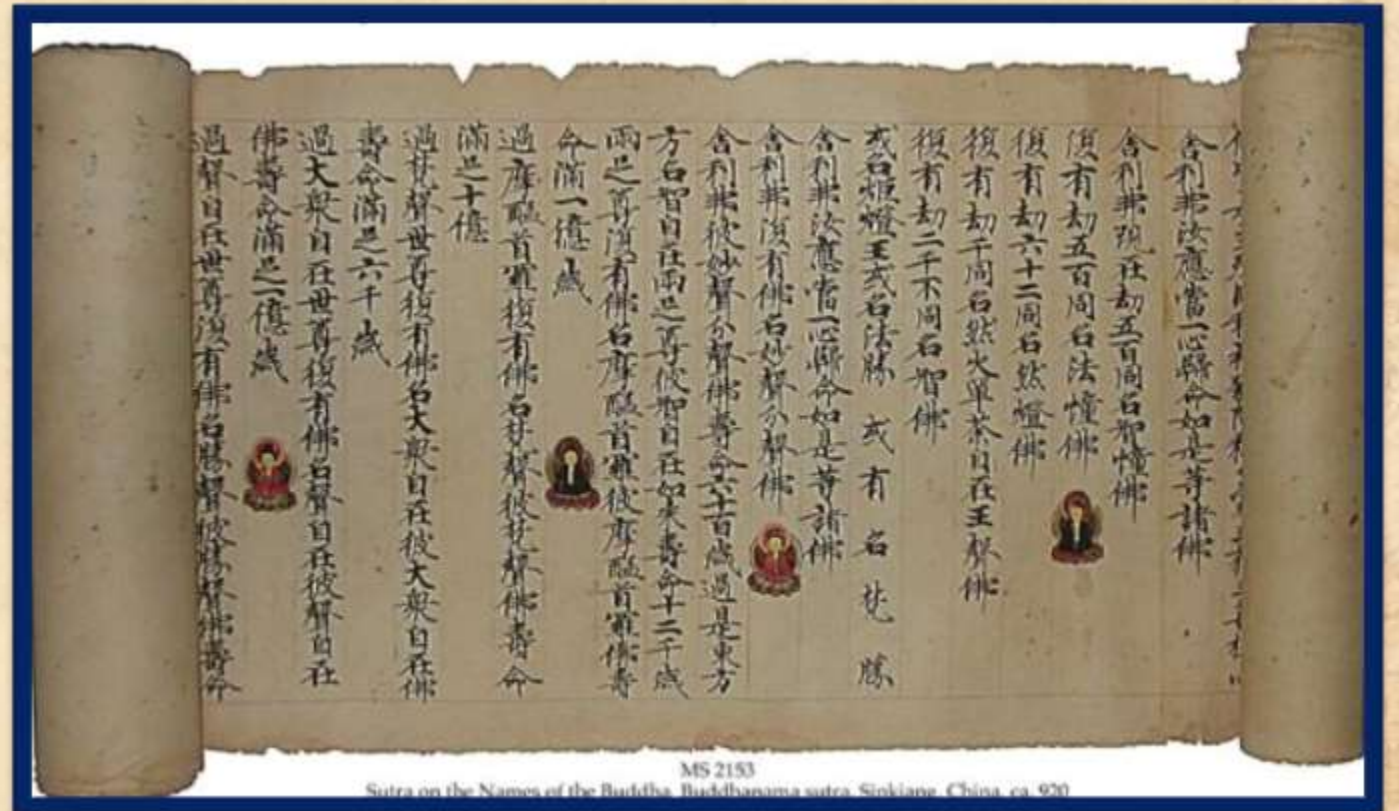 舍利弗汝應當一心歸命如是等諸佛
舍利弗現在劫五百同名智憧佛
復有劫五百同名法憧佛
復有劫六十二同名然燈佛
復有劫千同名然火單荼自在王聲佛
復有劫二千不同名智佛
或名炬燈王或名法勝 或有名梵勝
舍利弗汝應當一心歸命如是等諸佛
舍利弗復有佛名妙聲分聲佛
舍利弗彼妙聲分聲佛壽命六十百歲過是東方
方名智自在兩足尊彼智自在如來壽命十二千歲
兩足尊復有佛名摩醯首羅彼摩醯首羅佛壽
命滿一億歲
過摩醯首羅復有佛名梵聲彼梵聲佛壽命
滿足十億
過梵聲世尊復有佛名大衆自在彼大衆自在佛
壽命滿足六千歲
過大衆自在世尊復有佛名聲自在彼聲自在
佛壽命滿足一億歲
過聲自在世尊復有佛名勝聲彼勝聲佛壽命
MS 2153
Sutra on the Names of the Buddha. Buddhanama sutra. Sinkiang, China, ca. 920